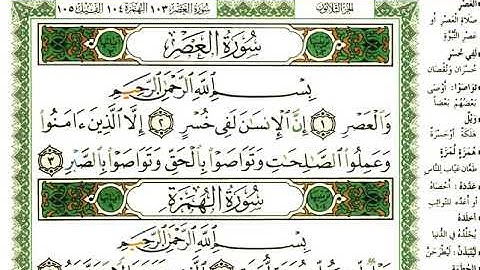 الجزء الثلاثون
سورة العصر ١٠٣ الهمزة ١٠٤ الفيل ١٠٥
سُورَةُ الْعَصْرِ
بِسْمِ ٱللَّهِ ٱلرَّحْمَٰنِ ٱلرَّحِيمِ
وَٱلْعَصْرِ ١ إِنَّ ٱلْإِنسَانَ لَفِى خُسْرٍ ٢ إِلَّا ٱلَّذِينَ ءَامَنُوا۟
وَعَمِلُوا۟ ٱلصَّٰلِحَٰتِ وَتَوَاصَوْا۟ بِٱلْحَقِّ وَتَوَاصَوْا۟ بِٱلصَّبْرِ ٣
سُورَةُ الْهُمَزَةِ
بِسْمِ ٱللَّهِ ٱلرَّحْمَٰنِ ٱلرَّحِيمِ
العَصْرِ
صلاة العصر أو
عصر النبوة
لفي خسر
خسران ونقصان
تواصوا: أوصى
بعضهم بعضاً
ويل
هلكة أو حسرة
همزة لمزة
طعان عياب للناس
عدده: أحصاه
أو أعده للنوائب
أخلده
يخلده في الدنيا
لينبذن: ليطرحن
الحطمة